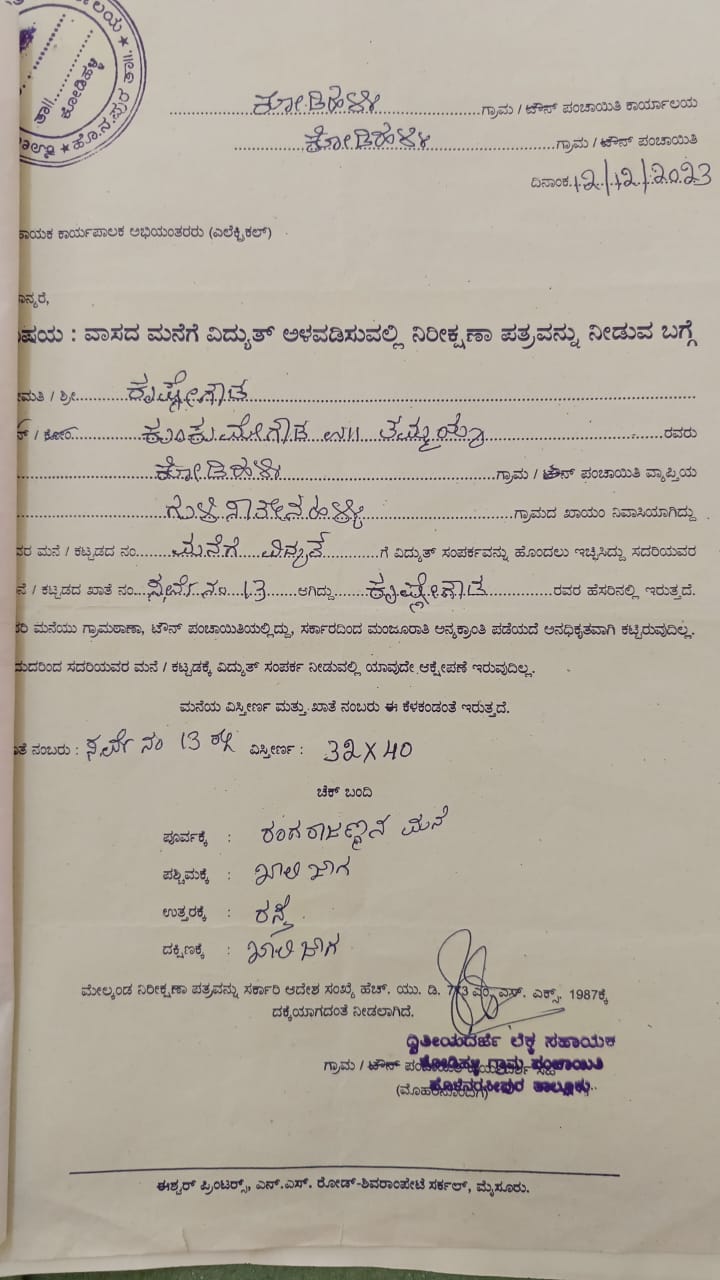 ತಾ||............
ಕೋಡಿಹಳ್ಳಿ
★ ಹೊ.ನ.ಪುರ ತಾ||. ★
ಕೋಡಿಹಳ್ಳಿ ಗ್ರಾಮ / ಟೌನ್ ಪಂಚಾಯಿತಿ ಕಾರ್ಯಾಲಯ
ಕೋಡಿಹಳ್ಳಿ ಗ್ರಾಮ / ಟೌನ್ ಪಂಚಾಯಿತಿ
ದಿನಾಂಕ. 12/12/2023
ಹಾಯಕ ಕಾರ್ಯಪಾಲಕ ಅಭಿಯಂತರರು (ಎಲೆಕ್ಟ್ರಿಕಲ್)
ಾನ್ಯರೆ,
ವಿಷಯ : ವಾಸದ ಮನೆಗೆ ವಿದ್ಯುತ್ ಅಳವಡಿಸುವಲ್ಲಿ ನಿರೀಕ್ಷಣಾ ಪತ್ರವನ್ನು ನೀಡುವ ಬಗ್ಗೆ
ೀಮತಿ / ಶ್ರೀ ಕೃಷ್ಣೇಗೌಡ
ನ್ / ಕೋಂ ಕುಂಕುಮೇಗೌಡ ಉ|| ತಮ್ಮಯ್ಯ ರವರು
ಕೋಡಿಹಳ್ಳಿ ಗ್ರಾಮ / ಟೌನ್ ಪಂಚಾಯಿತಿ ವ್ಯಾಪ್ತಿಯ
ಗ್ರಾಮದ ಖಾಯಂ ನಿವಾಸಿಯಾಗಿದ್ದು
ವರ ಮನೆ / ಕಟ್ಟಡದ ನಂ. ಮನೆಗೆ ಗೆ ವಿದ್ಯುತ್ ಸಂಪರ್ಕವನ್ನು ಹೊಂದಲು ಇಚ್ಛಿಸಿದ್ದು ಸದರಿಯವರ
ನೆ / ಕಟ್ಟಡದ ಖಾತೆ ನಂ. ಸರ್ವೆ ನಂ 13 ಆಗಿದ್ದು ಕೃಷ್ಣೇಗೌಡ ರವರ ಹೆಸರಿನಲ್ಲಿ ಇರುತ್ತದೆ.
ರಿ ಮನೆಯು ಗ್ರಾಮಠಾಣಾ, ಟೌನ್ ಪಂಚಾಯಿತಿಯಲ್ಲಿದ್ದು, ಸರ್ಕಾರದಿಂದ ಮಂಜೂರಾತಿ ಅನ್ಯಕ್ರಾಂತಿ ಪಡೆಯದೆ ಅನಧಿಕೃತವಾಗಿ ಕಟ್ಟಿರುವುದಿಲ್ಲ.
ದುದರಿಂದ ಸದರಿಯವರ ಮನೆ / ಕಟ್ಟಡಕ್ಕೆ ವಿದ್ಯುತ್ ಸಂಪರ್ಕ ನೀಡುವಲ್ಲಿ ಯಾವುದೇ ಆಕ್ಷೇಪಣೆ ಇರುವುದಿಲ್ಲ.
ಮನೆಯ ವಿಸ್ತೀರ್ಣ ಮತ್ತು ಖಾತೆ ನಂಬರು ಈ ಕೆಳಕಂಡಂತೆ ಇರುತ್ತದೆ.
ತೆ ನಂಬರು : ಸರ್ವೆ ನಂ 13 ರಲ್ಲಿ ವಿಸ್ತೀರ್ಣ : 32 X 40
ಚೆಕ್ ಬಂದಿ
ಪೂರ್ವಕ್ಕೆ : ರಂಗರಾಜಣ್ಣನ ಮನೆ
ಪಶ್ಚಿಮಕ್ಕೆ : ಖಾಲಿ ಜಾಗ
ಉತ್ತರಕ್ಕೆ : ರಸ್ತೆ
ದಕ್ಷಿಣಕ್ಕೆ : ಖಾಲಿ ಜಾಗ
ಮೇಲ್ಕಂಡ ನಿರೀಕ್ಷಣಾ ಪತ್ರವನ್ನು ಸರ್ಕಾರಿ ಆದೇಶ ಸಂಖ್ಯೆ ಹೆಚ್. ಯು. ಡಿ. ಎಂ. ಎಸ್. ಎಕ್ಸ್. 1987ಕ್ಕೆ
ದಕ್ಕೆಯಾಗದಂತೆ ನೀಡಲಾಗಿದೆ.
ದ್ವಿತೀಯದರ್ಜೆ ಲೆಕ್ಕ ಸಹಾಯಕ
ಗ್ರಾಮ / ಟೌನ್
ಕೋಡಿಹಳ್ಳಿ ಗ್ರಾಮ ಪಂಚಾಯಿತಿ
ಹೊಳೆನರಸೀಪುರ ತಾಲ್ಲೂಕು.
ಈಶ್ವರ್ ಪ್ರಿಂಟರ್ಸ್, ಎನ್.ಎಸ್. ರೋಡ್-ಶಿವರಾಂಪೇಟೆ ಸರ್ಕಲ್, ಮೈಸೂರು.